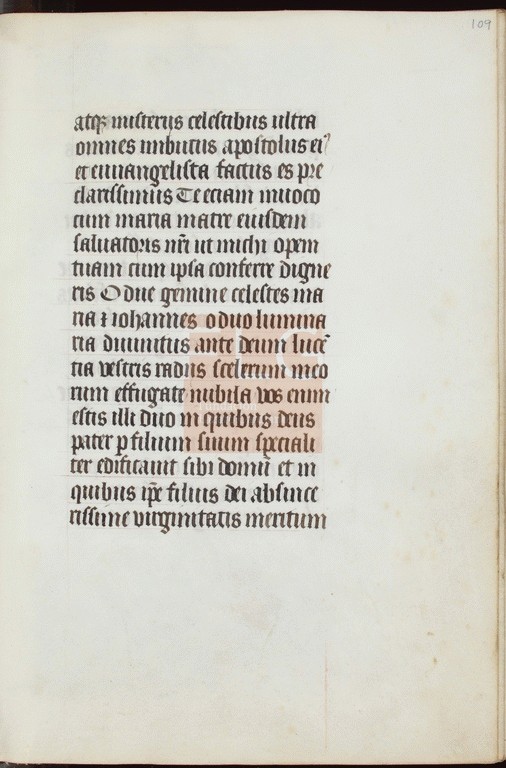 109
atqꝫ misterijs celestibus ultra
omnes imbutus apostolus eiꝰ
et euuangelista factus es pre
clarissimus Te eciam inuoco
cum maria matre eiusdem
saluatoris nr̃i ut michi opem
tuam cum ipsa conferre digne
ris O due gemme celestes ma
ria ⁊ iohannes o duo lumina
ria diuinitus ante deum lucẽ
tia vestris radiis scelerum meo
rum effugate nubila vos enim
estis illi duo in quibus deus
pater ꝑ filium suum speciali
ter edificauit sibi domũ et in
quibus ip̃e filius dei ab since
rissime virginitatis meritum